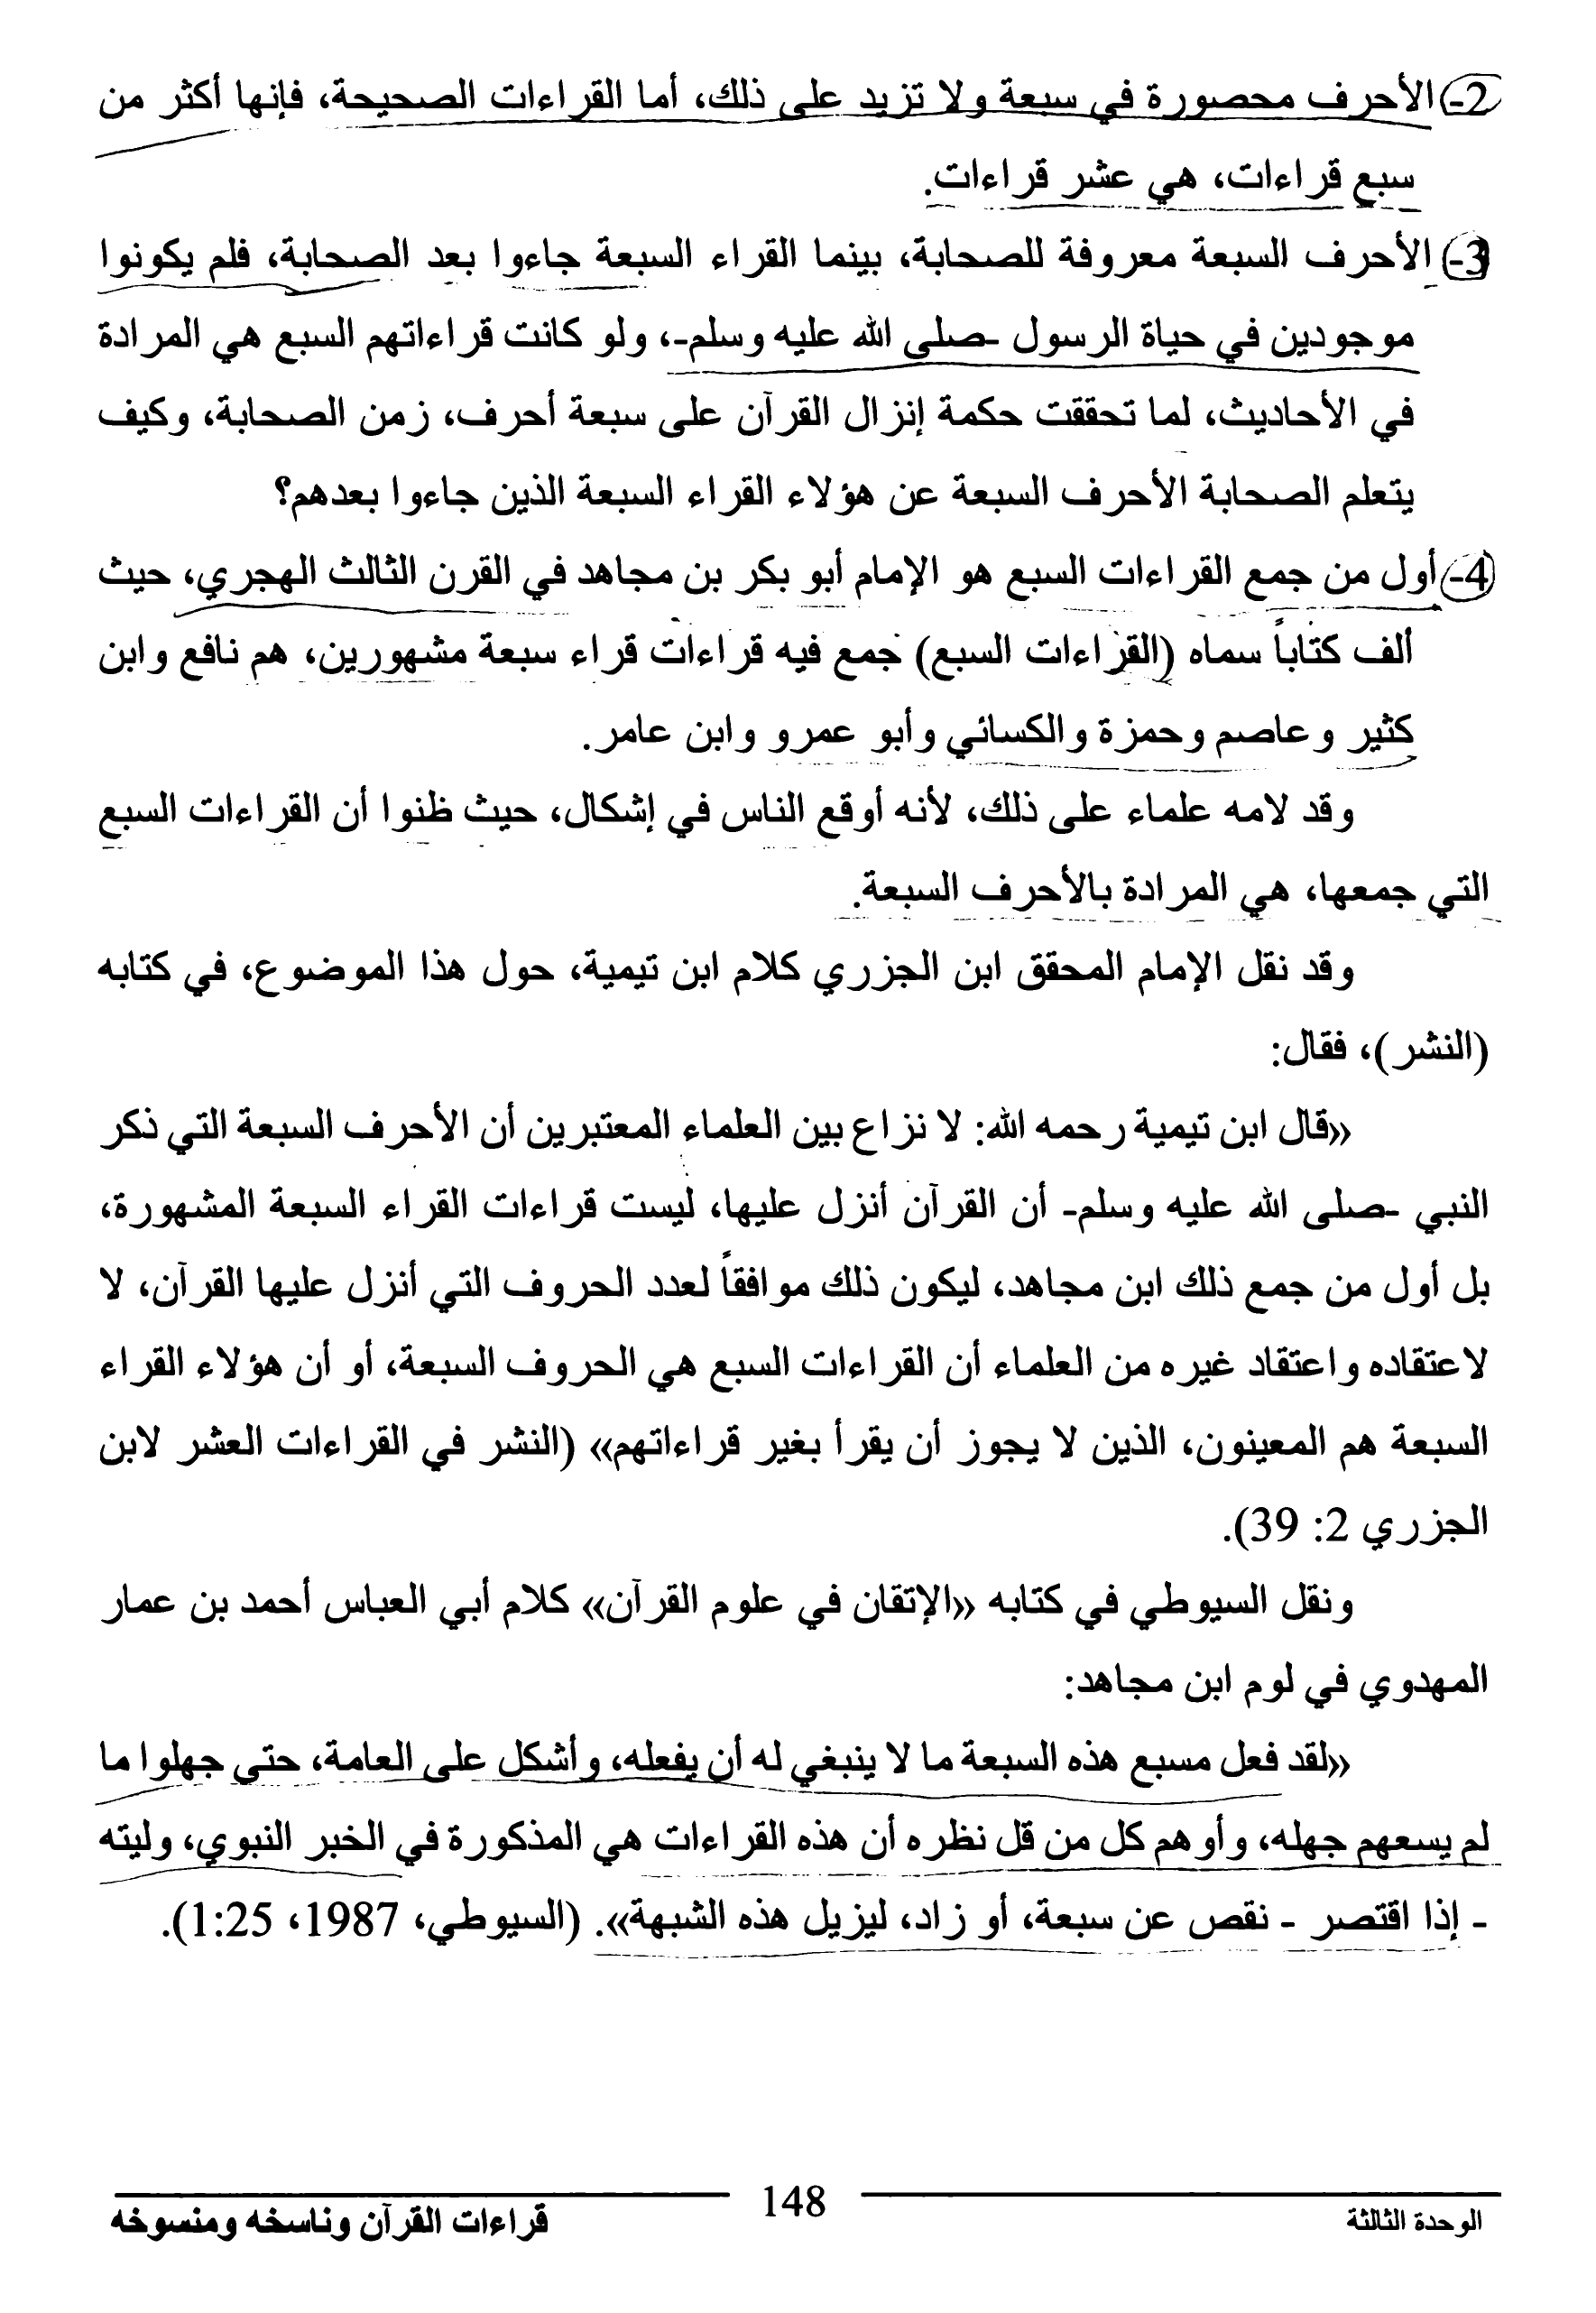 2- الأحرف محصورة في سبعة ولا تزيد على ذلك، أما القراءات الصحيحة، فإنها أكثر من
سبع قراءات، هي عشر قراءات.
3- الأحرف السبعة معروفة للصحابة، بينما القراء السبعة جاءوا بعد الصحابة، فلم يكونوا
موجودين في حياة الرسول -صلى الله عليه وسلم-، ولو كانت قراءاتهم السبع هي المرادة
في الأحاديث، لما تحققت حكمة إنزال القرآن على سبعة أحرف، زمن الصحابة، وكيف
يتعلم الصحابة الأحرف السبعة عن هؤلاء القراء السبعة الذين جاءوا بعدهم؟
4- أول من جمع القراءات السبع هو الإمام أبو بكر بن مجاهد في القرن الثالث الهجري، حيث
ألف كتاباً سماه (القراءات السبع) جمع فيه قراءات قراء سبعة مشهورين، هم نافع وابن
كثير وعاصم وحمزة والكسائي وأبو عمرو وابن عامر.
وقد لامه علماء على ذلك، لأنه أوقع الناس في إشكال، حيث ظنوا أن القراءات السبع
التي جمعها، هي المرادة بالأحرف السبعة.
وقد نقل الإمام المحقق ابن الجزري كلام ابن تيمية، حول هذا الموضوع، في كتابه
(النشر)، فقال:
«قال ابن تيمية رحمه الله: لا نزاع بين العلماء المعتبرين أن الأحرف السبعة التي ذكر
النبي -صلى الله عليه وسلم- أن القرآن أنزل عليها، ليست قراءات القراء السبعة المشهورة،
بل أول من جمع ذلك ابن مجاهد، ليكون ذلك موافقاً لعدد الحروف التي أنزل عليها القرآن، لا
لاعتقاده واعتقاد غيره من العلماء أن القراءات السبع هي الحروف السبعة، أو أن هؤلاء القراء
السبعة هم المعينون، الذين لا يجوز أن يقرأ بغير قراءاتهم» (النشر في القراءات العشر لابن
الجزري 2: 39).
ونقل السيوطي في كتابه «الإتقان في علوم القرآن» كلام أبي العباس أحمد بن عمار
المهدوي في لوم ابن مجاهد:
«لقد فعل مسبع هذه السبعة ما لا ينبغي له أن يفعله، وأشكل على العامة، حتى جهلوا ما
لم يسعهم جهله، وأوهم كل من قل نظره أن هذه القراءات هي المذكورة في الخبر النبوي، وليته
- إذا اقتصر - نقص عن سبعة، أو زاد، ليزيل هذه الشبهة». (السيوطي، 1987، 1:25).
الوحدة الثالثة 148 قراءات القرآن وناسخه ومنسوخه